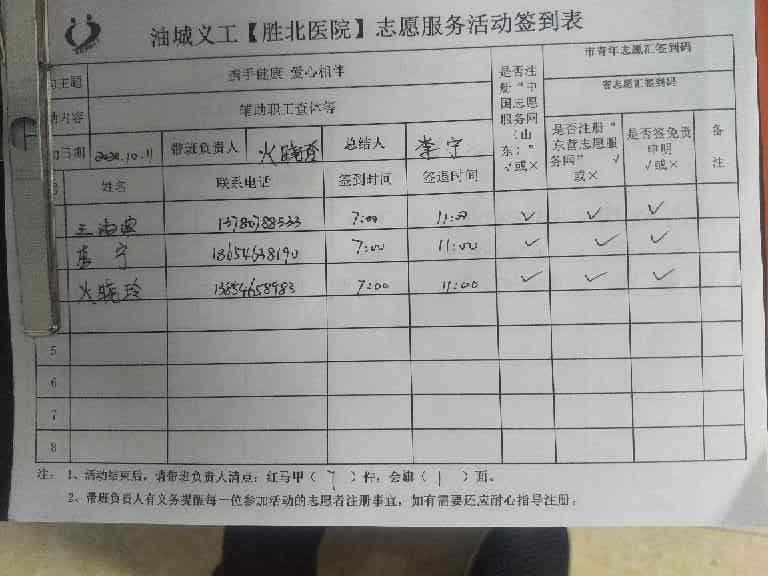 油城义工【胜北医院】志愿服务活动签到表
主题 携手健康 爱心相伴 是否注册“中国志愿服务网（山东）”√或× 市青年志愿汇签到码
内容 辅助职工查体等 省志愿汇签到码
日期 2020.10.11 带班负责人 火晓玲 总结人 李宁 是否注册“东营志愿服务网” √或× 是否签免责申明√或× 备注
姓名 联系电话 签到时间 签退时间
13780788533 7:00 11:00 √ √ √
李宁 18654638190 7:00 11:00 √ √ √
火晓玲 13854658983 7:00 11:00 √ √ √
5
6
7
8
注： 1、活动结束后，请带班负责人清点：红马甲（ ）件，会旗（ 1 ）页。
2、带班负责人有义务提醒每一位参加活动的志愿者注册事宜，如有需要还应耐心指导注册。